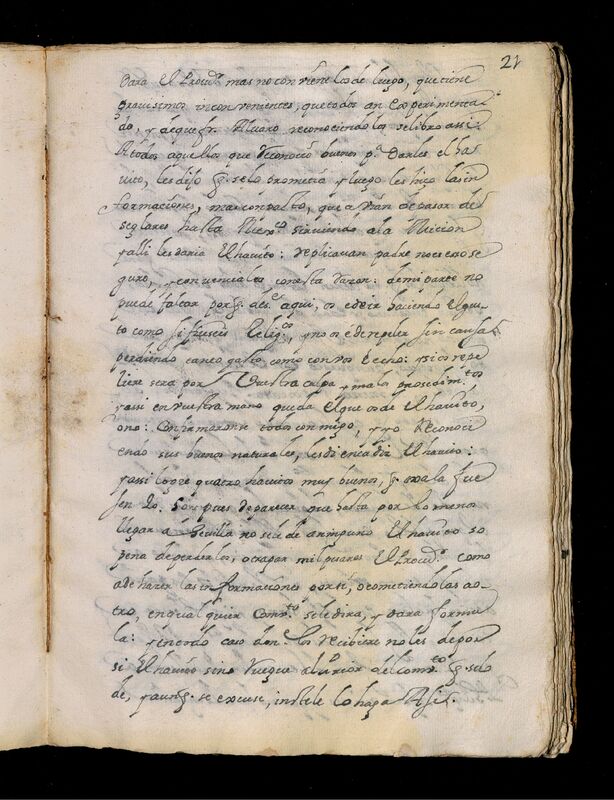 21
dara el Procu.or mas no conviene los dé luego, que tiene
gravisimos inconvenientes, que todos an experimenta-
do, y aeque fr. Alvaro reconociendolos se libro assi
A todos aquellos que reconocio buenos p.a darles el ha-
vito, les dijo q. se lo prometia y luego les hizo las in-
formaciones, mas con pacto, que avian de pasar de
seglares hasta Mex.co sirviendo a la Micion
y alli les daria el havito: replicavan padre no es eso se-
guro, y convencialos con esta razon: de mi parte no
puede faltar porq. desde aqui, os e de ir haciendo el gas-
to como si fueseis Relig.so, y no os e de repeler sin causa
perdiendo tanto gasto como con vos e hecho: y si os repe-
liere sera por vuestra culpa y malos procedim.tos
y assi en vuestra mano queda el que os de el havito,
o no: Confirmaronse todos con migo, y yo reconoci-
endo sus buenos naturales, les di en Cadiz el havito:
y assi logre quatro havitos muy buenos, q. oxala fue-
sen 20. Soy pues de parecer que hasta por lo menos
llegar a Sevilla no se le de a ninguno el havito so
pena de perderlos, o tragar mil puares el Procu.or como
a de hazer las informaciones por si, o cometiendolas a o-
tro, en qualquier Comv.to se le dira, y dara formu-
la: y en todo caso don.e los recibiere no les de por
si el havito sino ruegue al Prior del Comv.to q. se lo
de, y aunq. se excuse, instele lo haga Asi.